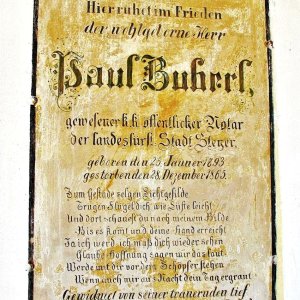 Hier ruhet im Frieden
der wohlgeborne Herr
Paul Buberl,
gewesener k.k. öffentlicher Notar
der landesfürstl. Stadt Steyer,
geboren den 25. Jänner 1893
gestorben den 28. Dezember 1865.
Zum Gestade selgen Lichtgefilde
Trugen Flügel dich wie Lüfte leicht
Und dort schauest du nach meinem Bilde
Bis es kömt und deine Hand erreicht
Ja ich werd ich muß dich wieder sehen
Glaube Hoffnung sagen mir das laut
Werde mit dir vor dem Schöpfer stehen
Wenn auch mir aus Nacht dem Tag ergraut
Gewidmet von seiner trauernden tief